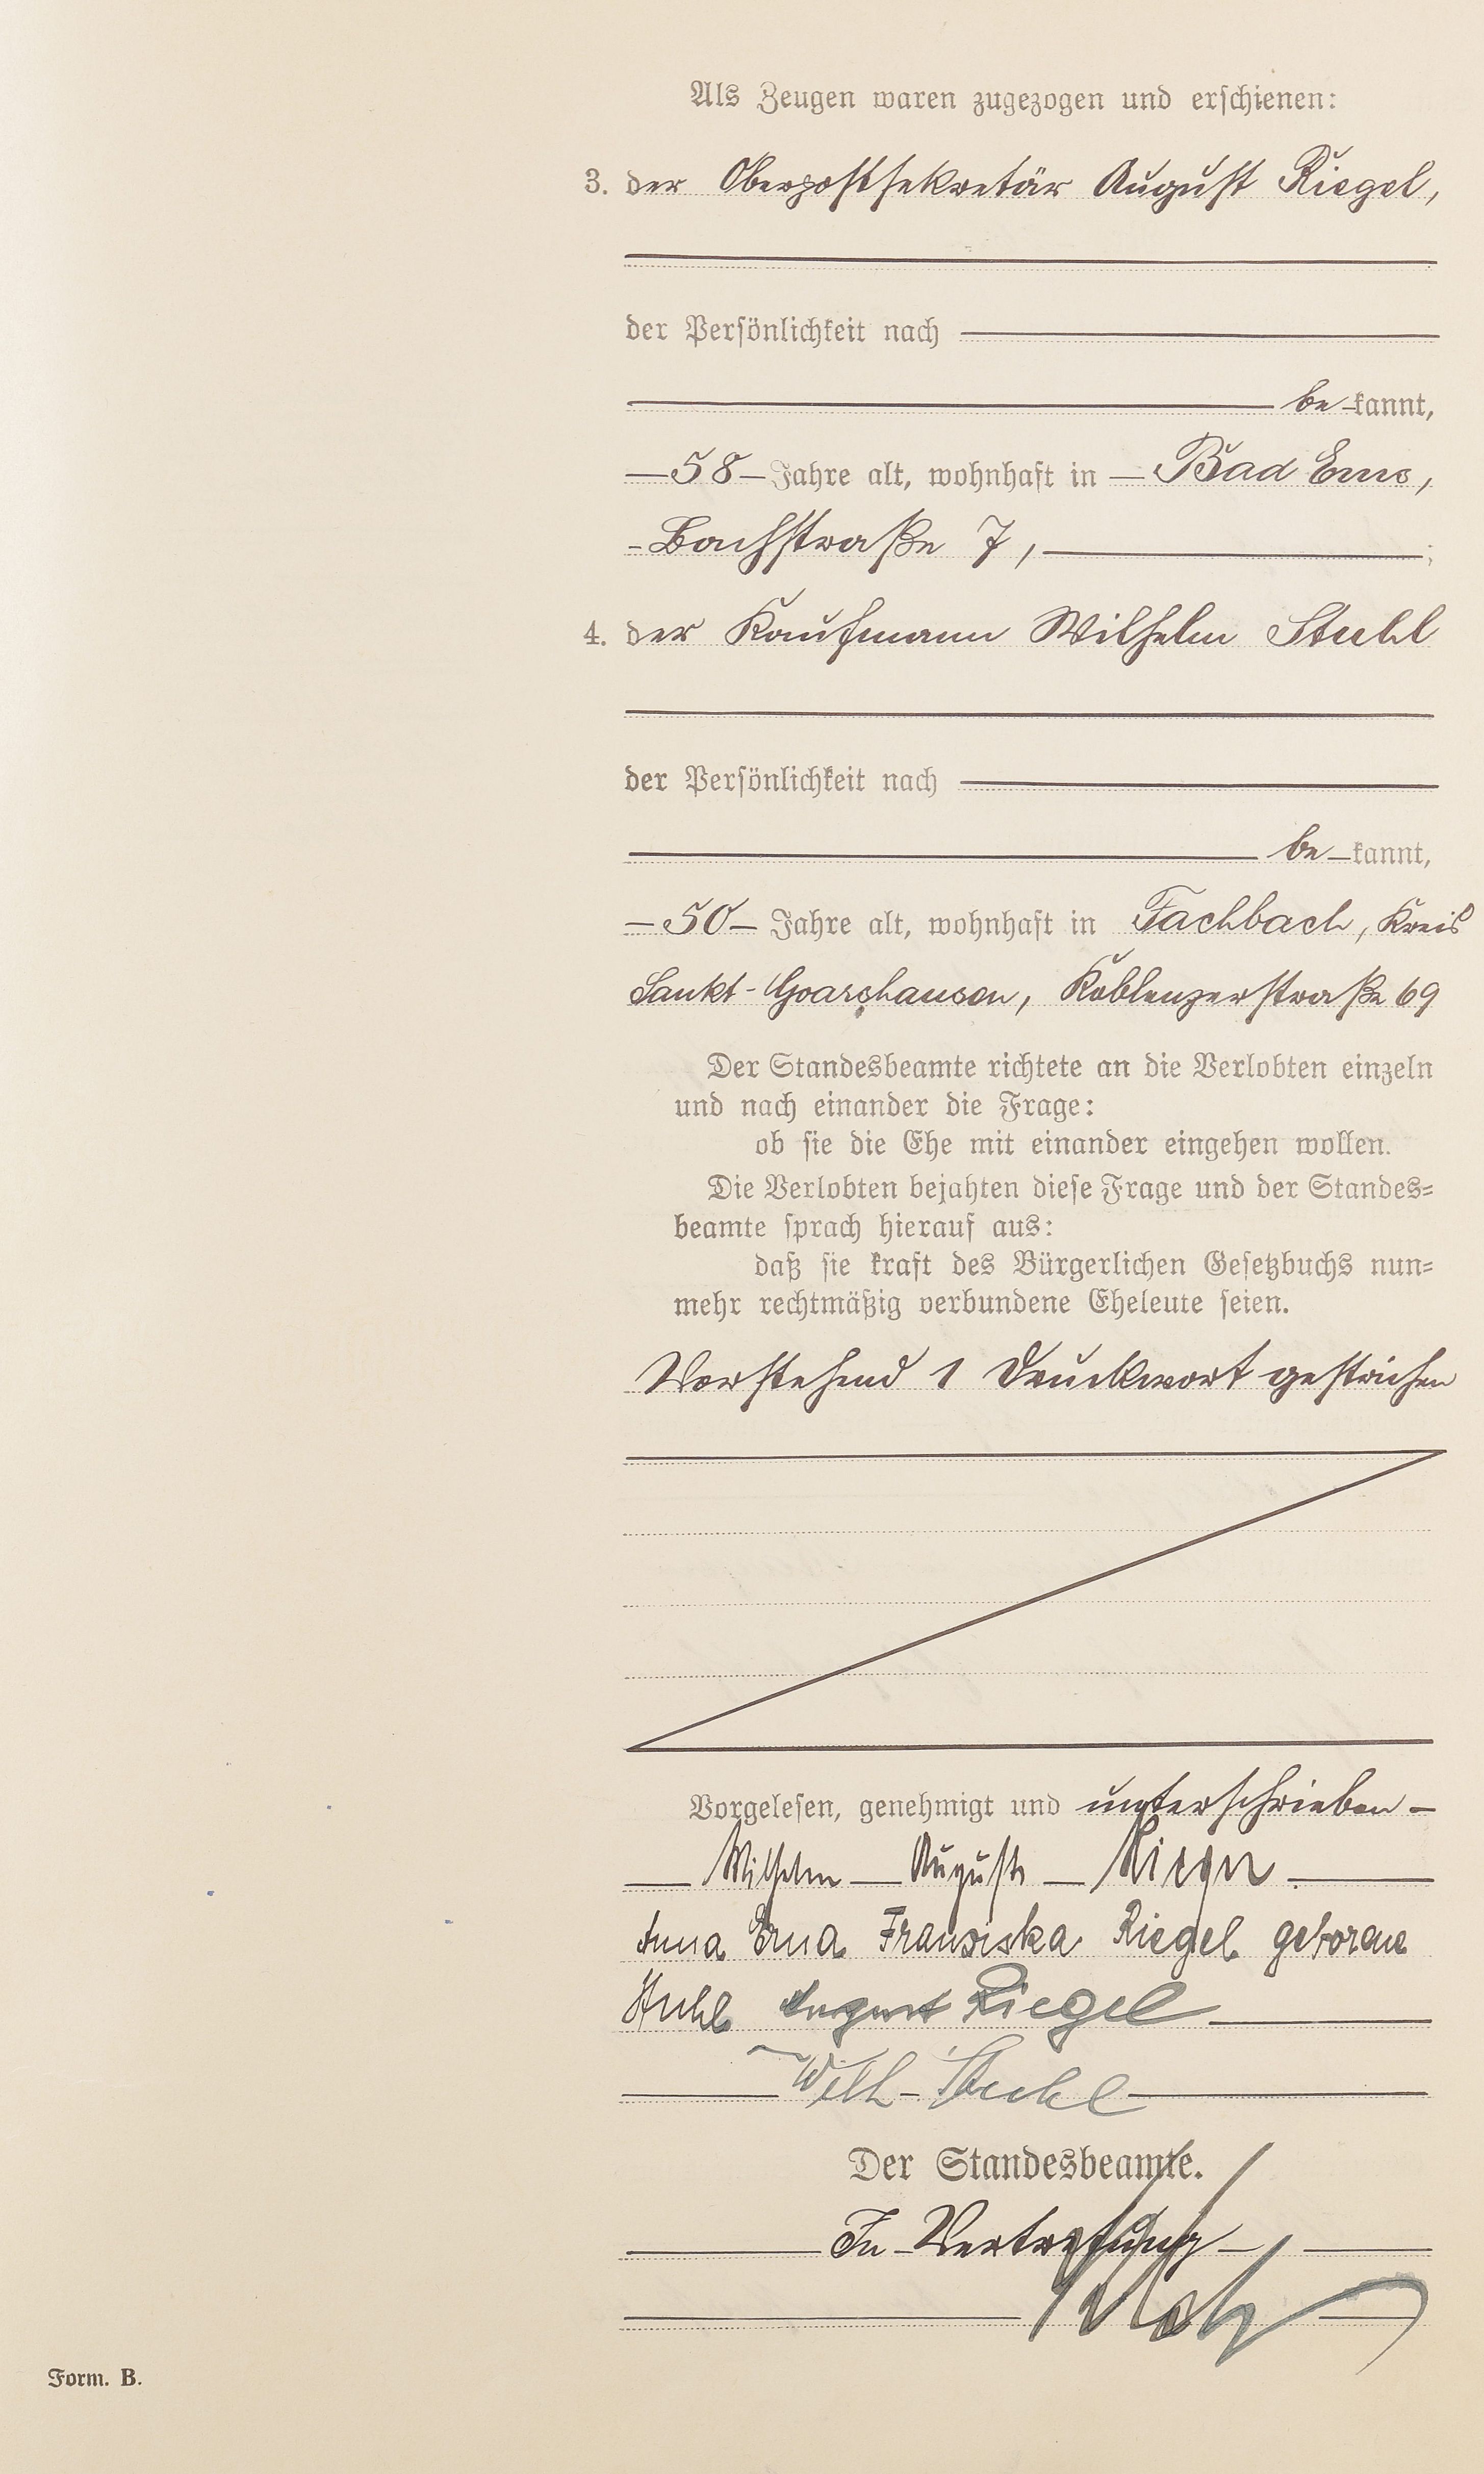 Als Zeugen waren zugezogen und erschienen:
3. der Oberpostsekretär August Riegel,
der Persönlichkeit nach
be kannt,
58 Jahre alt, wohnhaft in Bad Ems,
Bachstraße 7,
4. der Kaufmann Wilhelm Stuhl
der Persönlichkeit nach
be kannt,
50 Jahre alt, wohnhaft in Fachbach, Kreis
Sankt-Goarshausen, Koblenzerstraße 69
Der Standesbeamte richtete an die Verlobten einzeln
und nach einander die Frage:
ob sie die Ehe mit einander eingehen wollen.
Die Verlobten bejahten diese Frage und der Standes=
beamte sprach hierauf aus:
daß sie kraft des Bürgerlichen Gesetzbuchs nun=
mehr rechtmäßig verbundene Eheleute seien.
Vorstehend 1 Druckwort gestrichen
Vorgelesen, genehmigt und unterschrieben
Wilhelm August Riegel
Anna Erna Franziska Riegel geborene
Stuhl August Riegel
Wilh. Stuhl
Der Standesbeamte.
In Vertretung
Form. B.